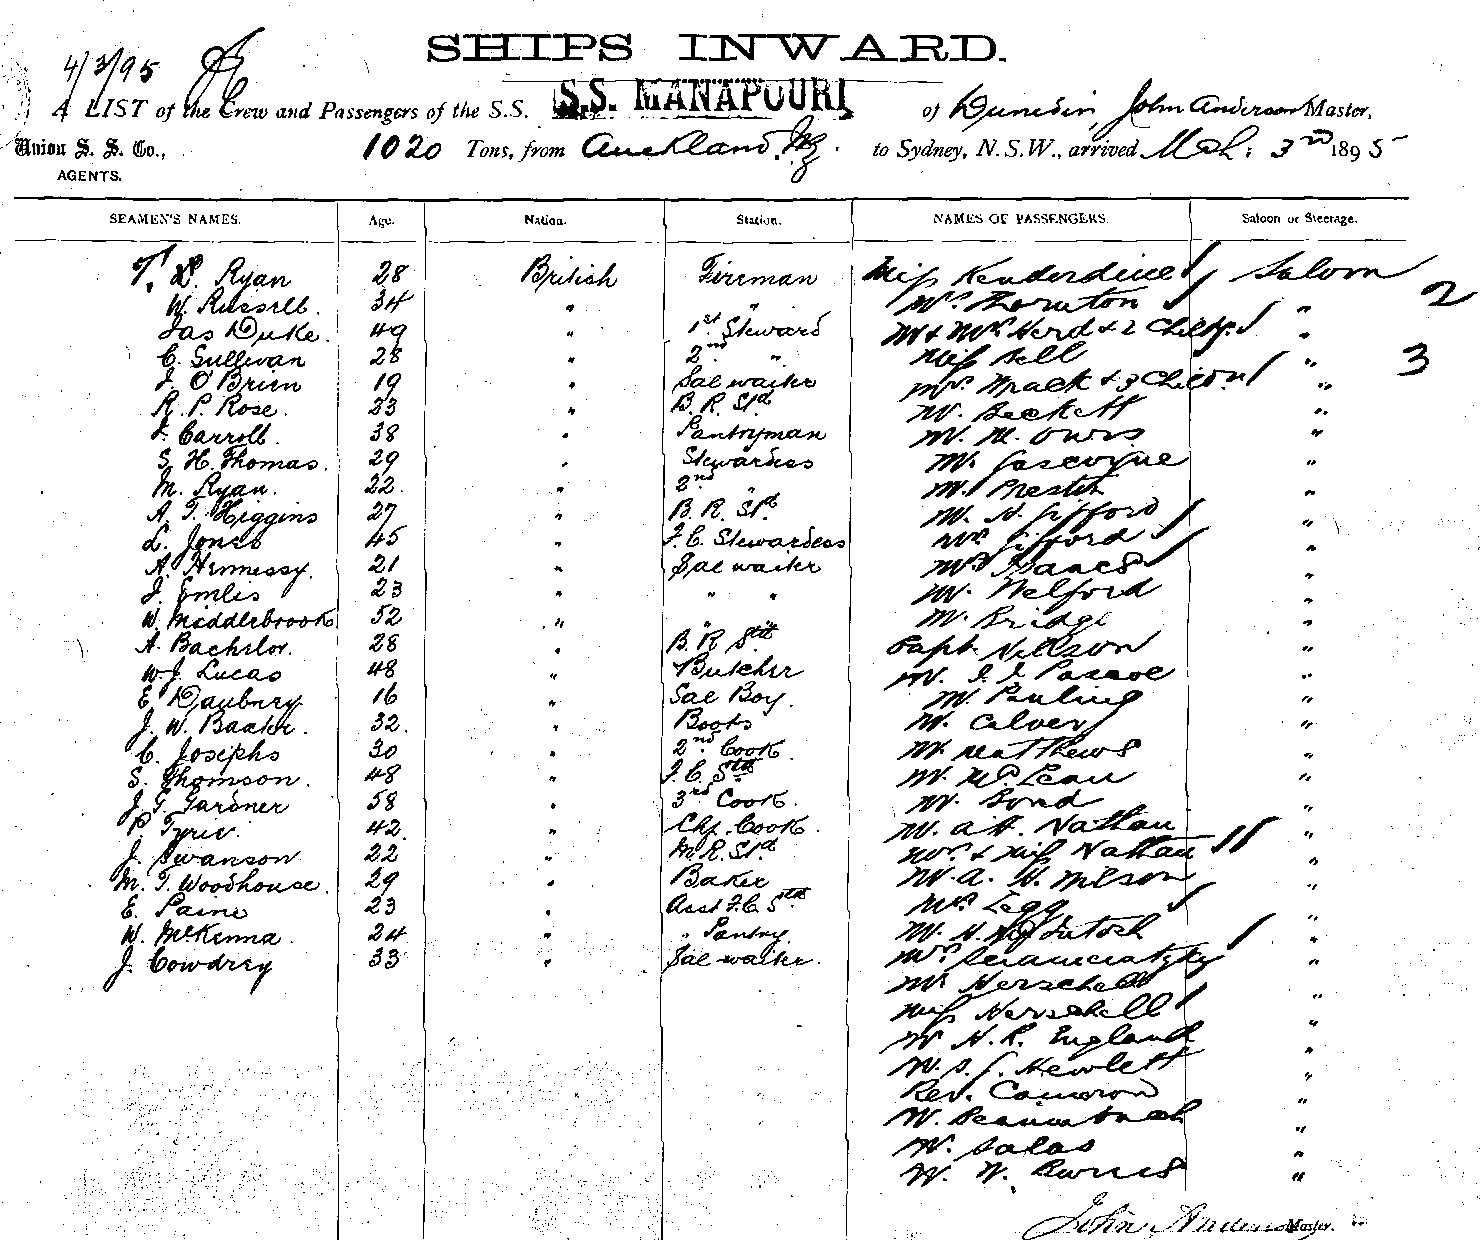 SHIPS INWARD.
4/3/95
A LIST of the Crew and Passengers of the S.S. S.S. MANAPOURI, of Dunedin, John Anderson Master,
Union S. S. Co., 1020 Tons, from Auckland, NZ. to Sydney, N.S.W., arrived Mch: 3rd 1895
AGENTS.
SEAMEN'S NAMES. Age. Nation. Station. NAMES OF PASSENGERS. Saloon or Steerage.
Ryan 28 British Fireman Miss Kenderdine Saloon
W. Russell 34 " " Mrs Thornton " 2
Jas Duke 49 " 1st Steward Mr & Mrs Herd & 2 Child. "
C. Sullivan 28 " 2nd " Miss Bell " 3
J. O'Brien 19 " Sal waiter Mrs Mack & 3 Childn "
R. P. Rose 23 " B. R. Std Mr. Beckett "
J. Carroll 38 " Pantryman Mr. M. Owers "
S. H. Thomas 29 " Stewardess Mr. Gascoyne "
M. Ryan 22 " 2nd " Mr. Preston "
A. T. Higgins 27 " B. R. Std Mr. N. Gifford "
L. Jones 45 " F. C. Stewardess Mrs Gifford "
A. Hennessy 21 " Sal waiter Mrs Isaacs "
J. Emlis 23 " " " Mr. Welford "
W. Middlebrook 52 " " " Mr. Bridge "
A. Bachelor 28 " B. R. Std Capt. Nillson "
W. J. Lucas 48 " Butcher Mr. J. J. Pascoe "
E. Daubney 16 " Sal Boy Mr. Pauling "
J. W. Baaker 32 " Boots Mr. Calver "
C. Josephs 30 " 2nd Cook Mr. Matthews "
S. Thomson 48 " F. C. Std Mr. McLean "
J. T. Gardner 58 " 3rd Cook Mr. Bond "
P. Tyrie 42 " Chf. Cook Mr. A H. Nathan "
J. Swanson 22 " M. R. Std Mrs & Miss Nathan "
M. T. Woodhouse 29 " Baker Mr. A. H. Milson "
E. Paine 23 " Asst F. C. Std Mrs Legg "
W. McKenna 24 " " Pantry Mr. H. McIntosh "
J. Cowdrey 33 " Sal waiter Mrs "
Mr Herschell "
Miss Herschell "
Mr H. R. England "
Mr. S. J. Hewlett "
Rev. Cameron "
Mr. "
Mr. Salas "
Mr W. "
John Anderson Master.